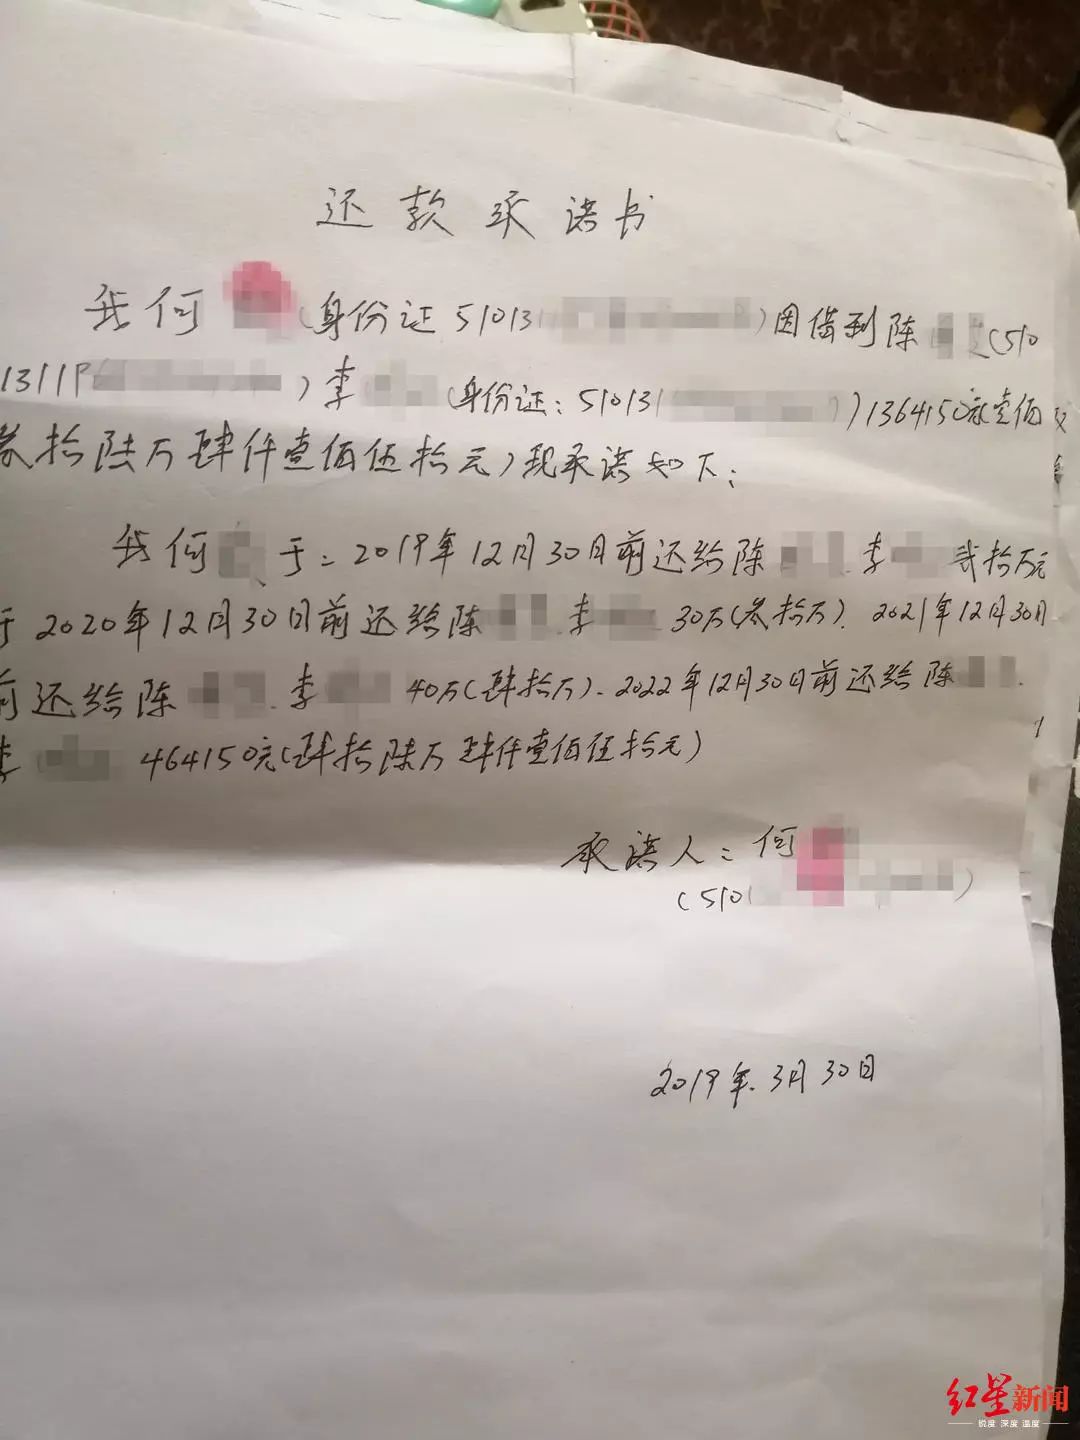 还款承诺书
我何(身份证51013)因借到陈(510
13119)李(身份证:51013)1364150元壹佰
叁拾陆万肆仟壹佰伍拾元)现承诺如下:
我何于:2019年12月30日前还给陈、李贰拾万元
于2020年12月30日前还给陈、李30万(叁拾万)、2021年12月30日
前还给陈、李40万(肆拾万)、2022年12月30日前还给陈、
李464150元(肆拾陆万肆仟壹佰伍拾元)
承诺人:何
(510)
2019年.3月30日
红星新闻
锐度 深度 温度